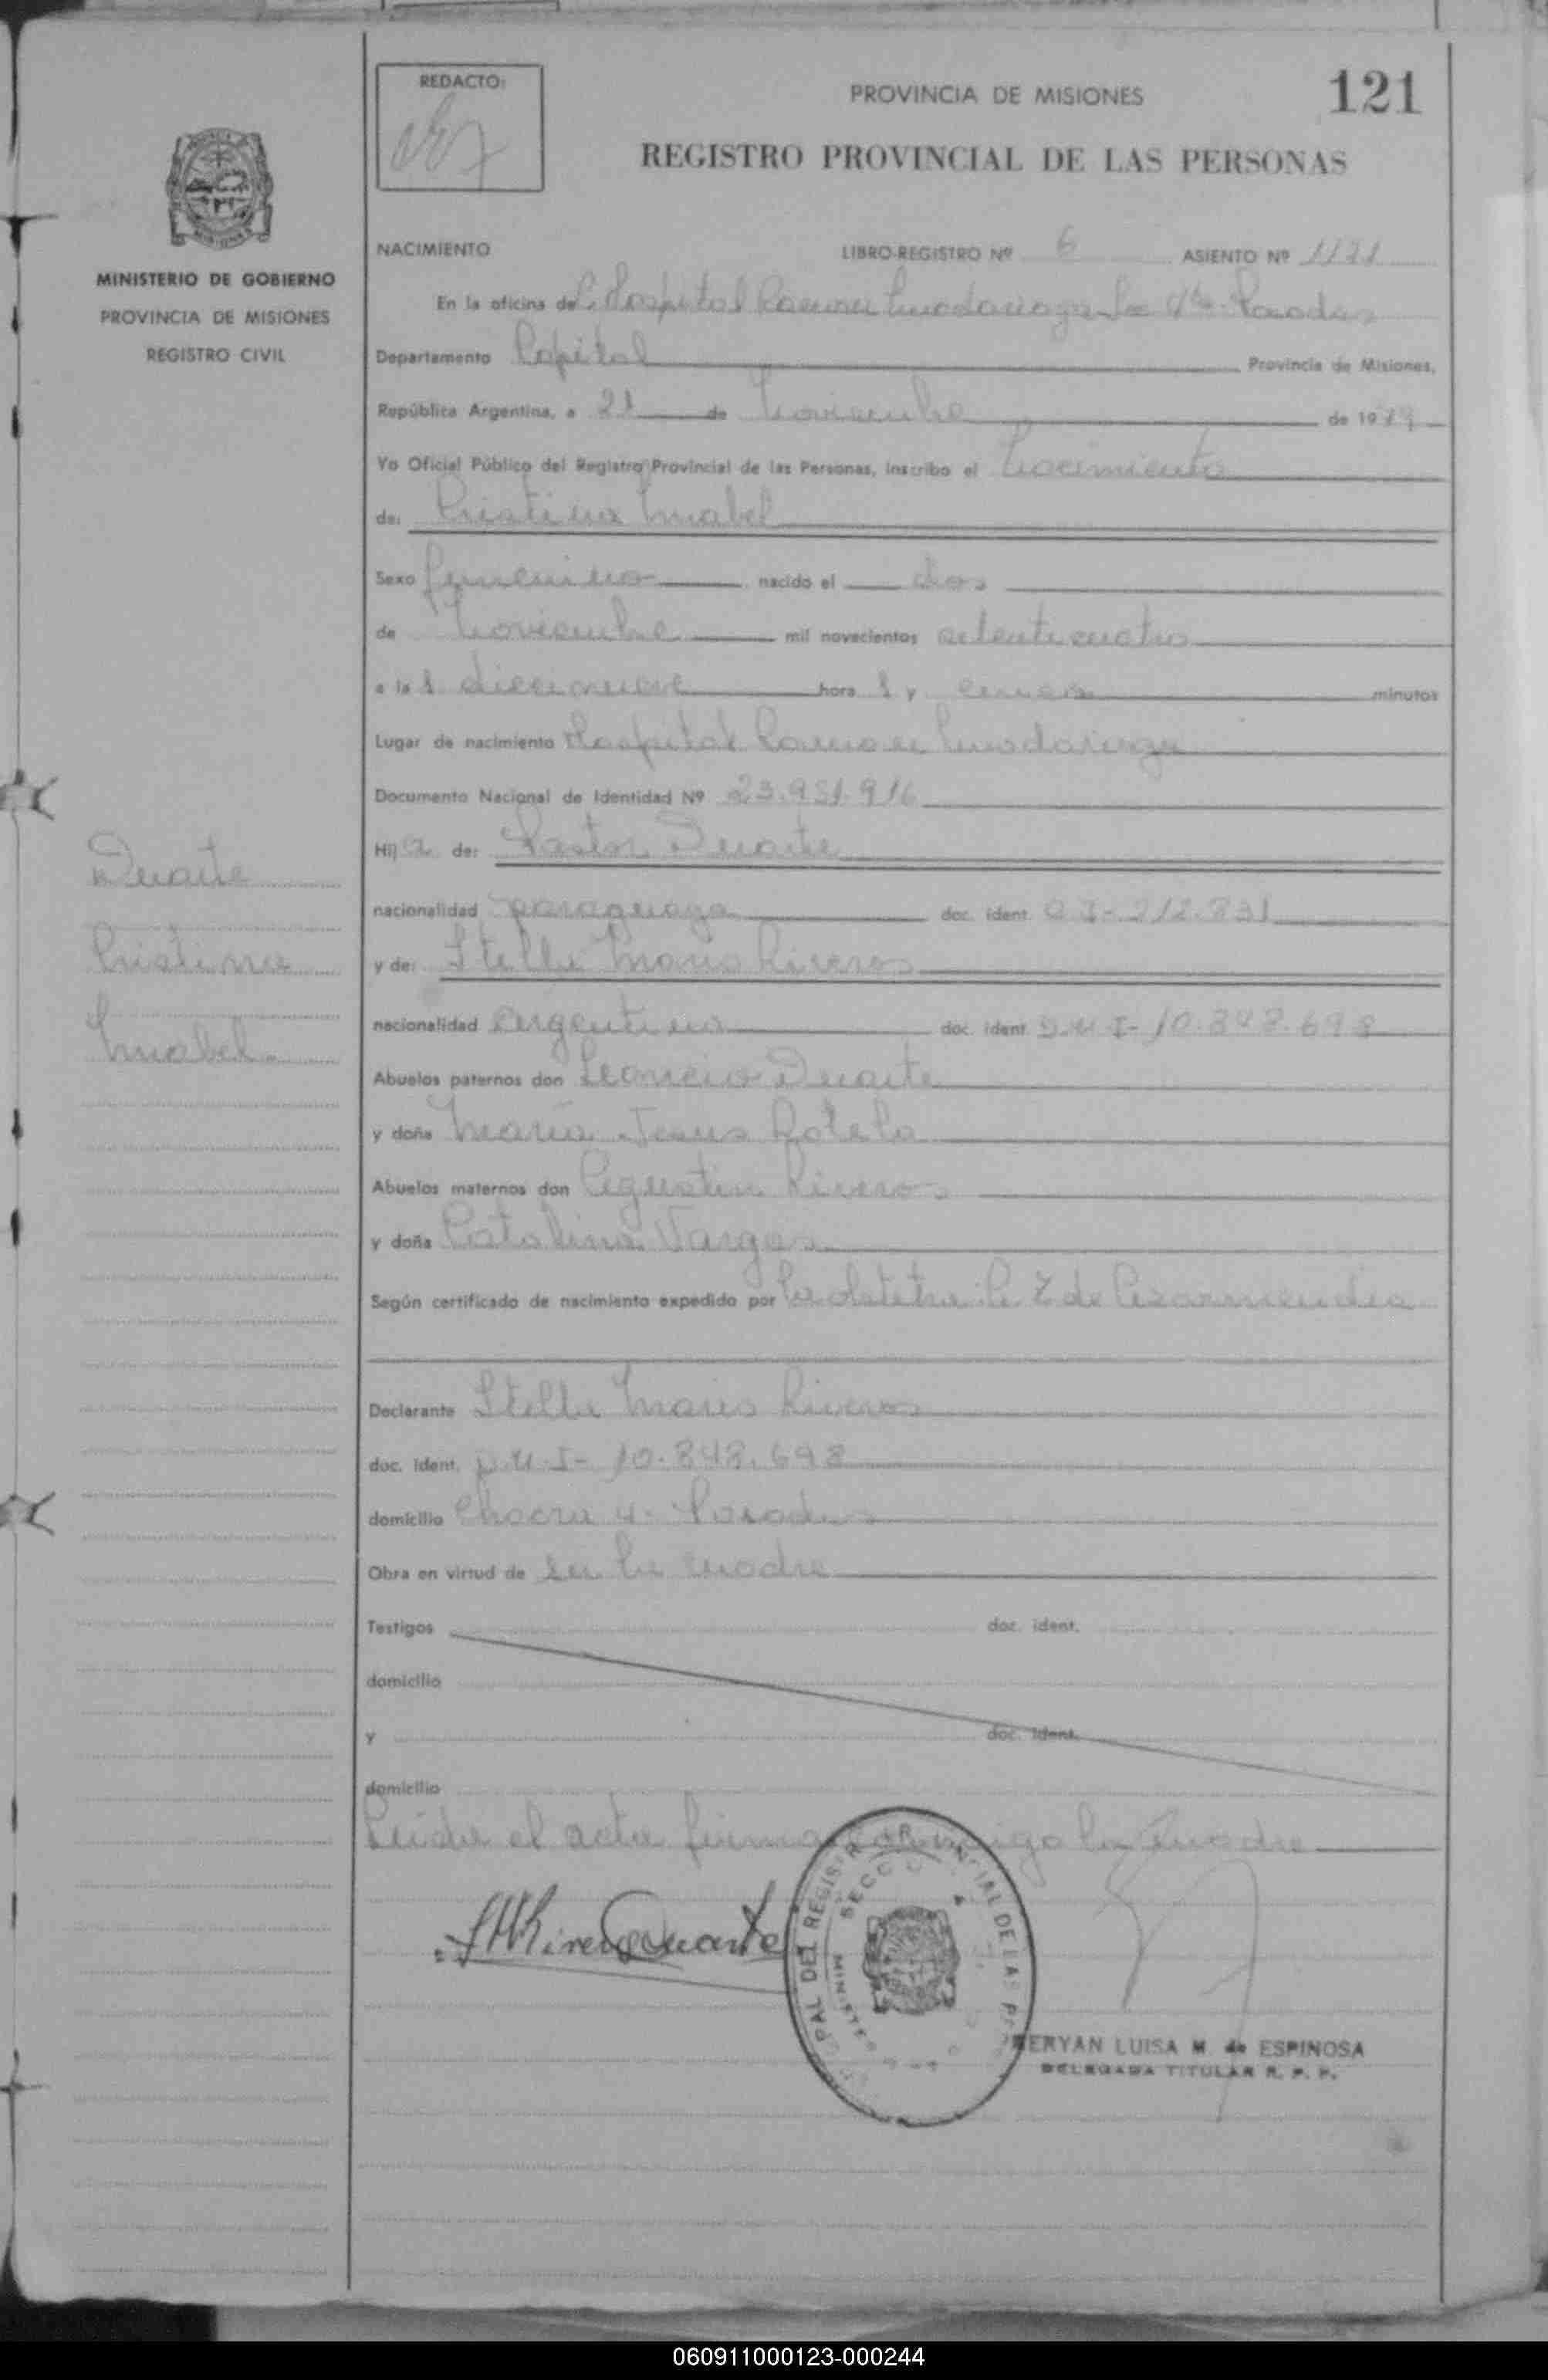 REDACTO:
PROVINCIA DE MISIONES
121
REGISTRO PROVINCIAL DE LAS PERSONAS
MINISTERIO DE GOBIERNO
PROVINCIA DE MISIONES
REGISTRO CIVIL
NACIMIENTO LIBRO-REGISTRO Nº 6 ASIENTO Nº 1121
En la oficina del Hospital Ramon Madariaga Posadas
Departamento Capital Provincia de Misiones,
República Argentina, a 21 de Noviembre de 19
Yo Oficial Público del Registro Provincial de las Personas, inscribo el Nacimiento
de: Cristina Mabel
Sexo femenino nacido el dos
de Noviembre mil novecientos setenticuatro
a las diecinueve horas y cinco minutos
Lugar de nacimiento Hospital Ramon Madariaga
Documento Nacional de Identidad Nº 23.951.916
Hija de: Pastor Duarte
nacionalidad paraguaya doc. ident. C I-
y de: Stella Maris Riveros
nacionalidad Argentina doc. ident. D.N.I- 10.848.698
Abuelos paternos don Duarte
y doña Maria Jesus Rotela
Abuelos maternos don Agustin Riveros
y doña Catalina Vargas
Según certificado de nacimiento expedido por la obstetra
Declarante Stella Maris Riveros
doc. ident. D.N.I- 10.848.698
domicilio Chacra 4- Posadas
Obra en virtud de ser la madre
Testigos doc. ident.
domicilio
y doc. ident.
domicilio
Leida el acta firma conmigo la madre
Duarte
Cristina
Mabel
SMRiveros Duarte
PAL DEL REGISTR NCIAL DE LAS P
SECC
MINISTE
ERYAN LUISA M. de ESPINOSA
DELEGADA TITULAR R. P. P.
060911000123-000244